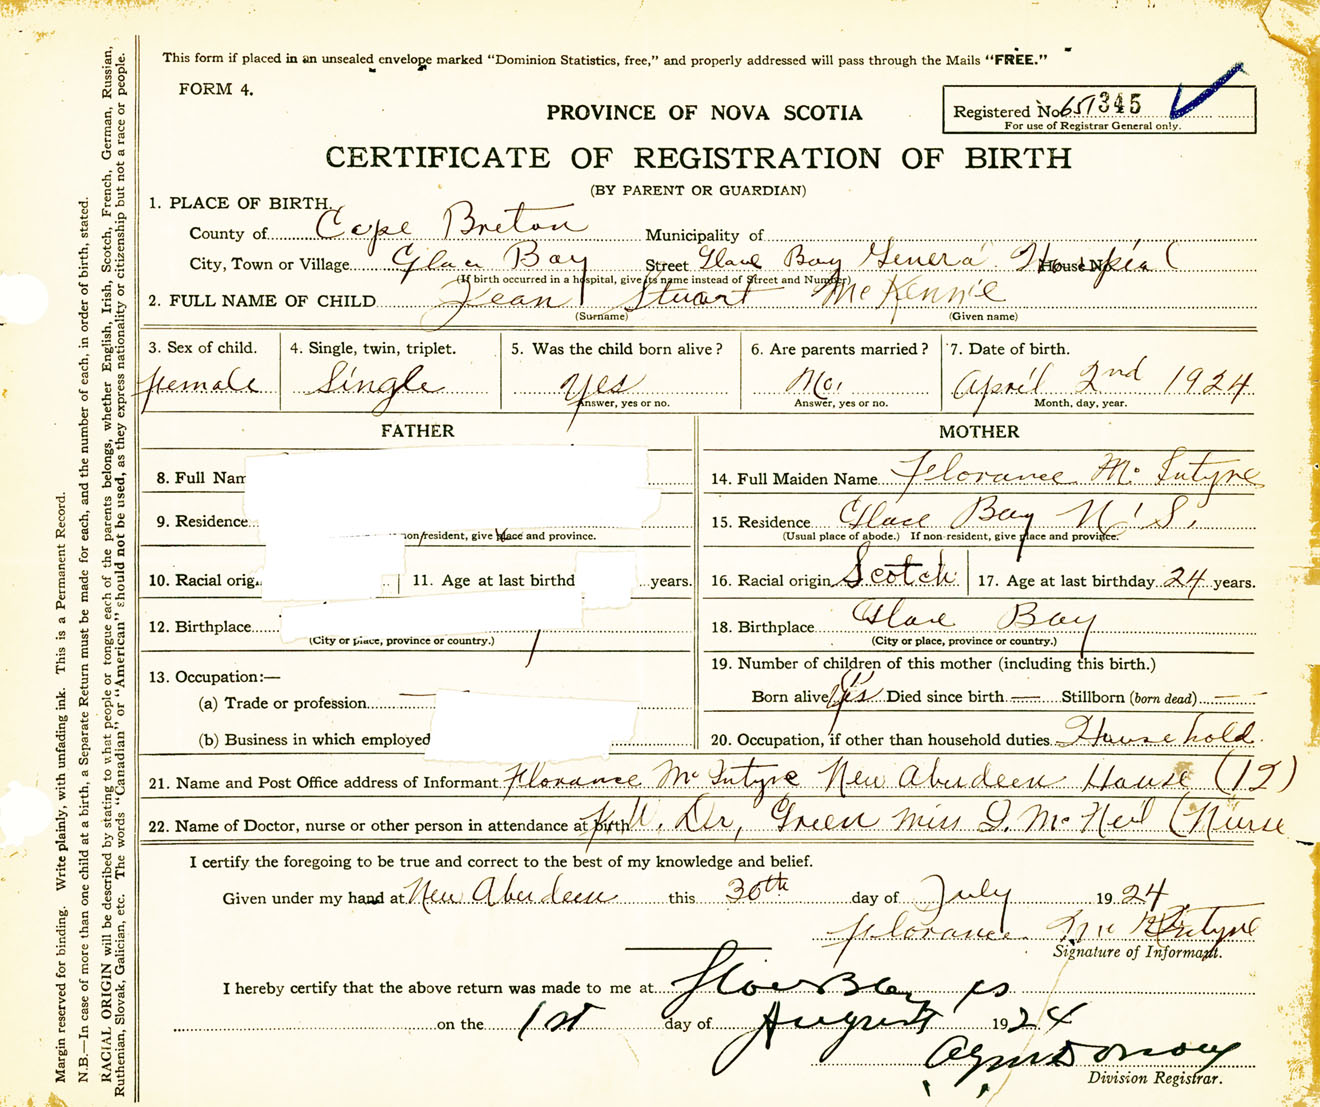 This form if placed in an unsealed envelope marked "Dominion Statistics, free," and properly addressed will pass through the Mails "FREE."
FORM 4.
PROVINCE OF NOVA SCOTIA
Registered No. 345
For use of Registrar General only.
CERTIFICATE OF REGISTRATION OF BIRTH
(BY PARENT OR GUARDIAN)
1. PLACE OF BIRTH.
County of Cape Breton Municipality of
City, Town or Village Glace Bay Street Glace Bay General Hospital House No.
(If birth occurred in a hospital, give its name instead of Street and Number)
2. FULL NAME OF CHILD Jean Stuart McKennie
(Surname) (Given name)
3. Sex of child. 4. Single, twin, triplet. 5. Was the child born alive? 6. Are parents married? 7. Date of birth.
female Single Yes No. April 2nd 1924
Answer, yes or no. Answer, yes or no. Month, day, year.
FATHER MOTHER
8. Full Nam 14. Full Maiden Name Florance McIntyre
9. Residence 15. Residence Glace Bay N.S.
non-resident, give place and province. (Usual place of abode.) If non-resident, give place and province.
10. Racial orig 11. Age at last birthd years. 16. Racial origin Scotch 17. Age at last birthday 24 years.
12. Birthplace 18. Birthplace Glace Bay
(City or place, province or country.) (City or place, province or country.)
13. Occupation:— 19. Number of children of this mother (including this birth.)
(a) Trade or profession Born alive Yes (1) Died since birth — Stillborn (born dead) —
(b) Business in which employed 20. Occupation, if other than household duties Household.
21. Name and Post Office address of Informant Florance McIntyre New Aberdeen House (12)
22. Name of Doctor, nurse or other person in attendance at birth Dr, Green Miss McNeil (Nurse
I certify the foregoing to be true and correct to the best of my knowledge and belief.
Given under my hand at New Aberdeen this 30th day of July 1924
Florance McIntyre
Signature of Informant.
I hereby certify that the above return was made to me at Glace Bay
on the 1st day of August 1924
Division Registrar.
Margin reserved for binding. Write plainly, with unfading ink. This is a Permanent Record.
N.B.—In case of more than one child at a birth, a Separate Return must be made for each, and the number of each, in order of birth, stated.
RACIAL ORIGIN will be described by stating to what people or tongue each of the parents belongs, whether English, Irish, Scotch, French, German, Russian,
Ruthenian, Slovak, Galician, etc. The words "Canadian" or "American" should not be used, as they express nationality or citizenship but not a race or people.